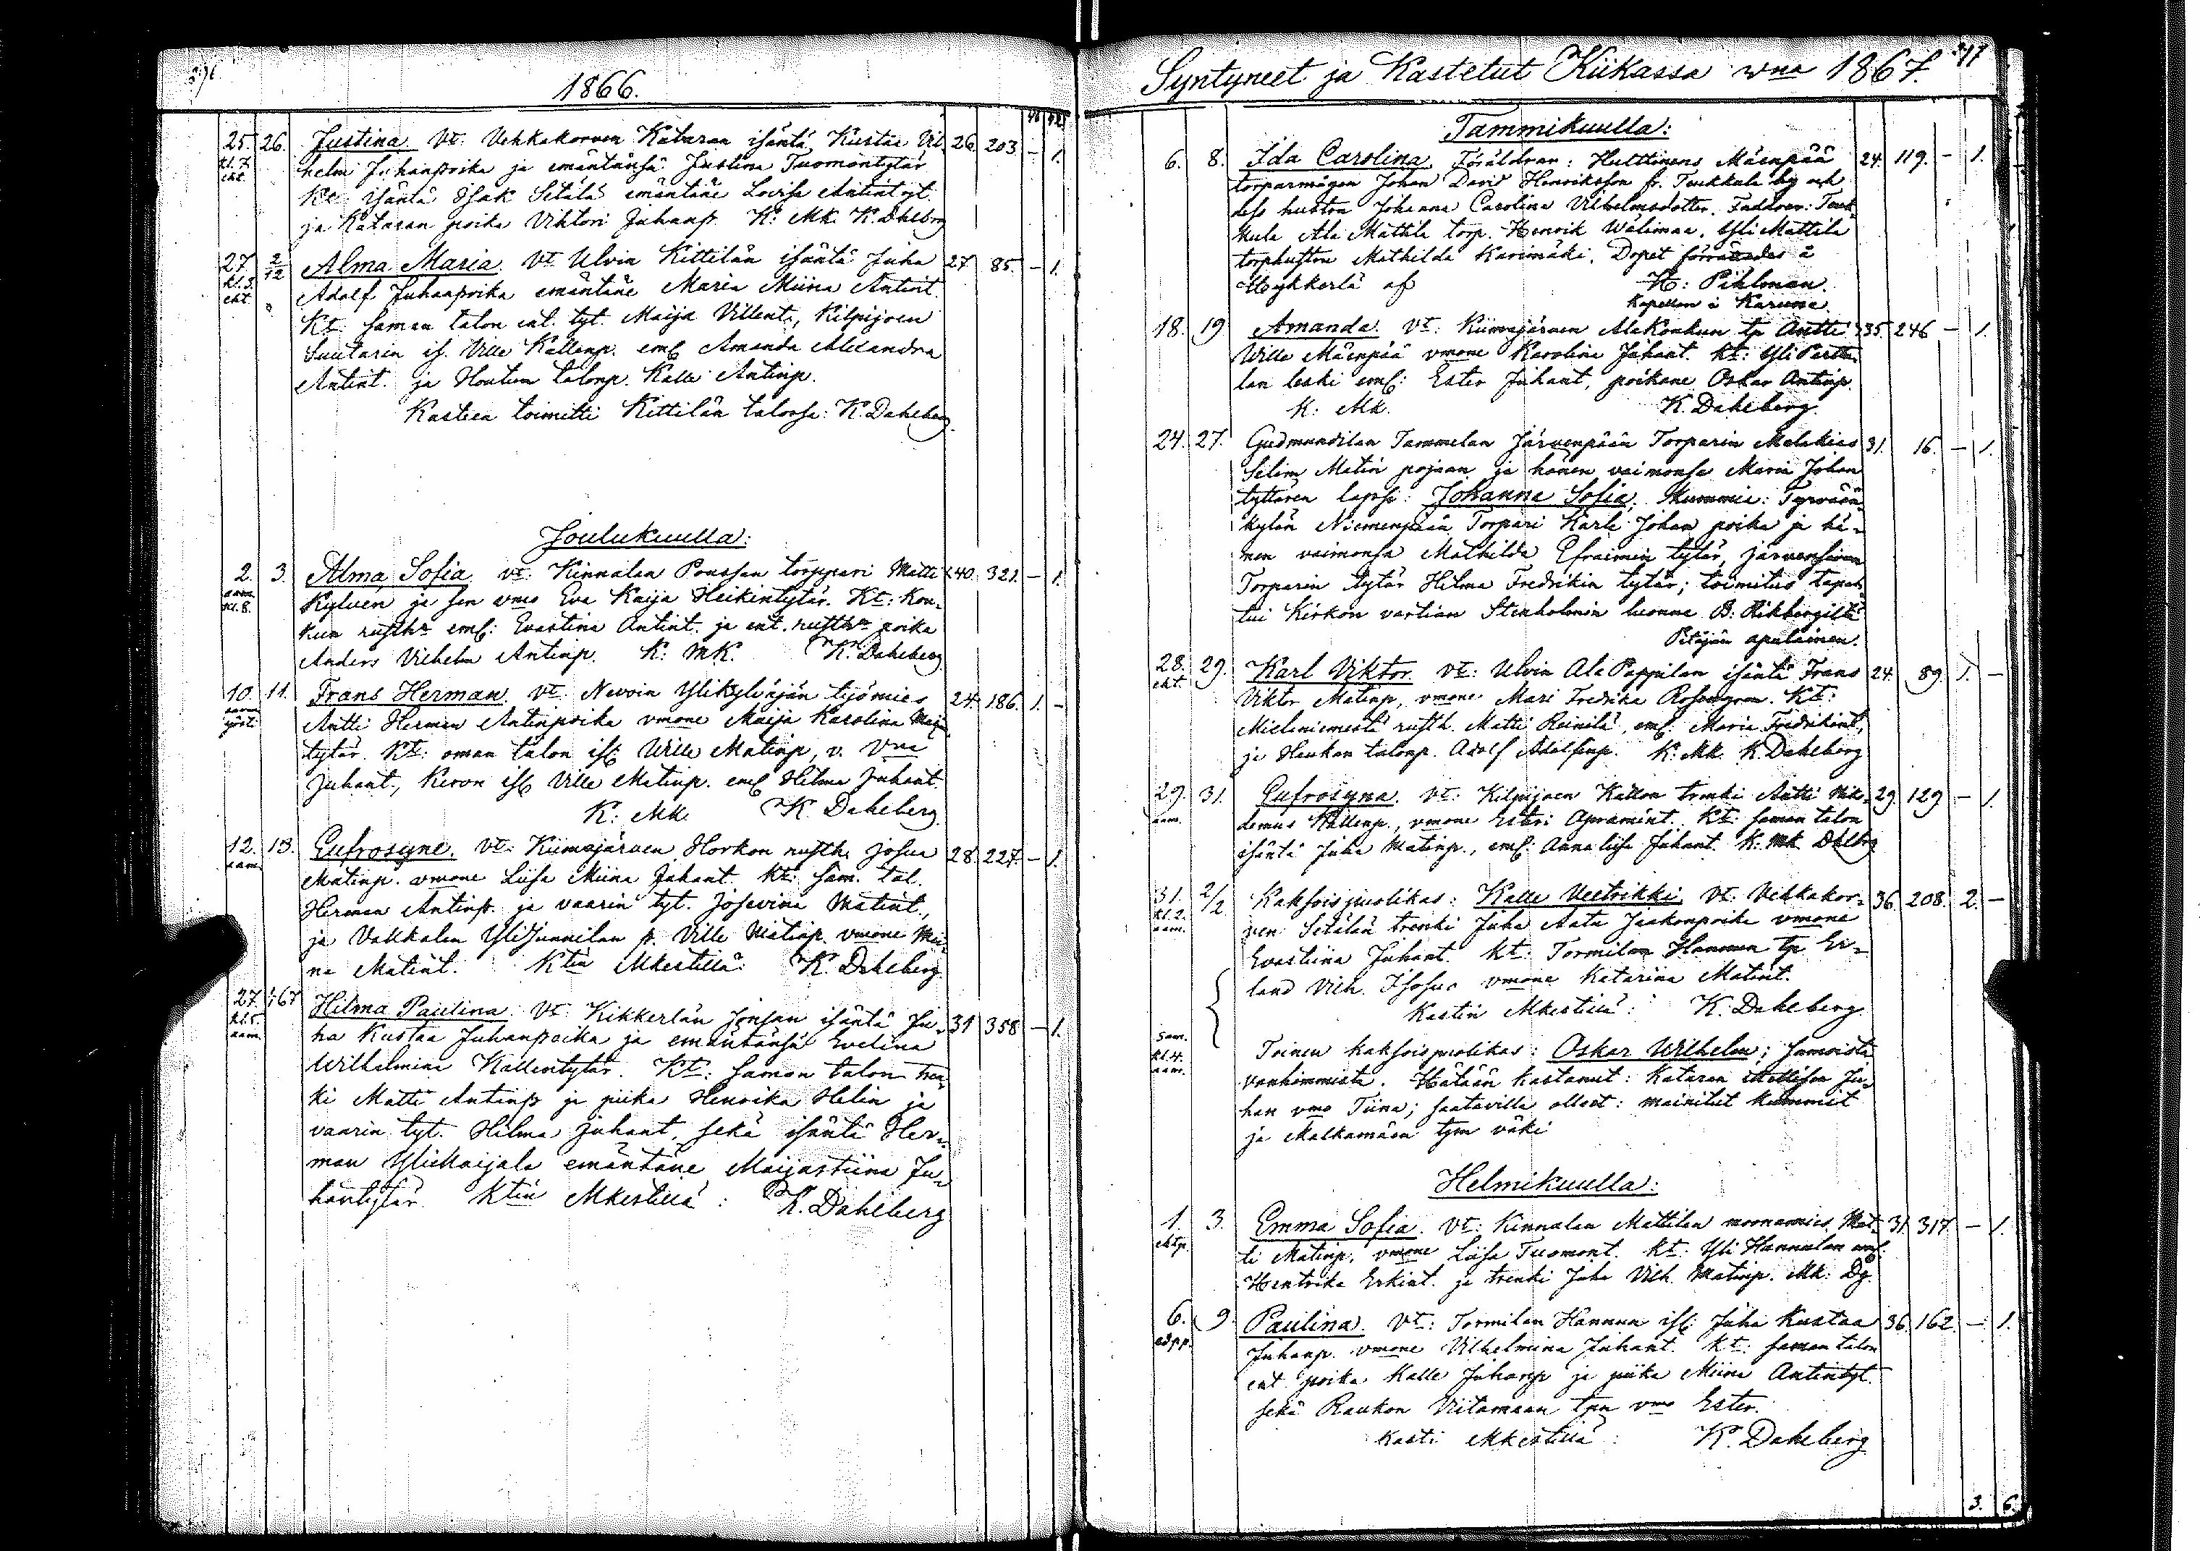 1866.
25. 26. Justina. Vt: Vehkakorven Kataran isäntä Kustaa Vil- 26. 203 - 1.
kl. 7. helmi Juhanpoika ja emäntänsä Justina Tuomontytär
eht. Kt: isäntä Isak Setälä emäntäne Lovisa Antintyt.
ja Kataran poika Viktori Juhanp. K: Mk. K. Dahlberg
27. 2/12 Alma Maria. Vt Ulvin Kittilän isäntä Juha 27. 85. - 1.
eht. Adolf Juhanpoika emäntäne Maria Miina Antint.
Kt: saman talon ent. tyt. Maija Villent., Kilpijoen
Suutarin is. Ville Kallenp. em. Amanda Alexandra
Antint. ja Houtun talonp. Kalle Antinp.
Kasteen toimitti Kittilän talossa: K. Dahlberg.
Joulukuulla:
2. 3. Alma Sofia. vt: Kinnalan Poussan torppari Matti 40. 321. - 1.
aam. kl. 8. Kylven ja sen vmo Eva Kaija Heikintytär. Kt: Kou-
kun rusth. em: Evastina Antint. ja ent. rusth. poika
Anders Vilhelm Antinp. K: MK. K. Dahlberg
10. 11. Frans Herman. Vt: Nevoin Ylikylänjän työmies 24. 186. 1. -
Antti Herman Antinpoika vmone Maija Karolina
tytär. Kt: oman talon is. Wille Matinp, v. Vna
Juhant., Keron is. Ville Matinp. em. Hilma Juhant.
K: Mk. K. Dahlberg.
12. 13. Eufrosyne. Vt: Kiimajärven Horkon rusth. Josua 28. 227. - 1.
aam. Matinp. vmone Liisa Miina Juhant. Kt: sam. tal.
Herman Antinp. ja vaarin tyt. Josevina Matint.,
ja Vakkalan YliJunnilan p. Ville Matinp. vmone Mii-
na Matint. Ktin Mkestillä: K. Dahlberg.
27. Hilma Paulina: Vt: Kikkerlän Jonsan isäntä Ju- 31 358 - 1.
kl. 5. aam. ha Kustaa Juhanpoika ja emäntänsä Evelina
Wilhelmina Kallentytär. Kt: saman talon tren-
ki Matti Antinp. ja piika Henrika Helin ja
vaarin tyt. Hilma Juhant. sekä isäntä Her-
man YliMaijala emäntäne Maijastiina Ju-
hantytär. Ktin Mkestillä: K. Dahlberg
Syntyneet ja Kastetut Kiikassa wna 1867.
Tammikuulla:
6. 8. Ida Carolina. Föräldrar: Hulttinens Mäenpää 24. 119. - 1.
torparmågen Johan David Henriksson fr. Tuukkala by och
dess hustru Johanna Carolina Vilhelmsdotter. Faddrar: Tuuk-
kula Ala Mattila torp. Henrik Wälimaa, Yli Mattila
torphustru Mathilda Karimäki. Dopet förrättades å
Hykkerlä af H: Pihlman
Kapellan i Karuna.
18. 19 Amanda. Vt: Kiimajärven AlaKoukun tp Antti 35. 246 - 1.
Wille Mäenpää vmone Karolina Juhant. Kt: Yli Pertti-
lan leski em: Ester Juhant, poikane Oskar Antinp.
K: Mk. K. Dahlberg.
24. 27. Gudmundilan Tammelan Järvenpään Torparin Malakias 31. 16. - 1.
Selim Matin pojan ja hänen vaimonsa Maria Johan
tyttären lapsi: Johanna Sofia. Kummia: Tyrvään
kylän Niemenpään Torpari Karle Johan poika ja hä-
nen vaimonsa Mathilda Efraimin tytär, järvensivun
Torparin tytär Hilma Fredrikin tytär; toimitus tapah-
tui Kirkon vartian Stenholmin luonna B: Rikbergiltä
Pitäjän apulainen.
28. 29. Karl Viktor. Vt: Ulvin Ala Pappilan isäntä Frans 24. 89. 1. -
eht. Viktor Matinp, vmone Mari Fredrika Rosengren. Kt:
Mielniemestä rusth. Matti Reinilä, em: Maria Fredrikint,
ja Haukan talonp. Adolf Adolfinp. K: Mk. K. Dahlberg
29. 31. Eufrosyna. Vt: Kilpijoen Kallon trenki Antti Nik- 29. 129 - 1.
aam. demus Kallenp., vmone Esteri Apramint. Kt: saman talon
isäntä Juha Matinp., em: Anna liisa Juhant. K: Mk. Dhlbrg
31. 2/2 Kaksoispuolikas: Kalle Veetrikki. Vt: Vehkakor- 36. 208. 2. -
kl. 2. aam. ven Setälän trenki Juha Aatu Jaakonpoika vmone
Evastiina Juhant. Kt: Tormilan Hannun tp Er-
land Vilh. vmone Katariina Matint.
Kastin Mkestillä: K. Dahlberg.
sam. kl. 4. aam. Toinen kaksoispuolikas: Oskar Wilhelm; samoista
vanhimmista. Hätään kastanut: Kataran Mellisen Ju-
han vmo Tiina; saatavilla olleet: mainitut kummit
ja Malkamäen tpn väki
Helmikuulla:
1. 3. Emma Sofia. Vt: Kinnalan Mattilan moonamies Mat- 31 317 - 1.
ti Matinp. vmone Liisa Tuomont. Kt: Yli Hannulan em:
Hentrika Erkint. ja trenki Juha Vilh. Matinp. Mk: Dg.
6. 9. Paulina. Vt: Tormilan Hannun is: Juha Kustaa 36. 162. - 1.
Juhanp. vmone Vilhelmina Juhant. Kt: saman talon
ent. poika Kalle Juhanp ja piika Miina Antintyt.
sekä Raukon Viitamaan tpn vmo Ester.
Kasti Mkestillä: K. Dahlberg
3. 6.